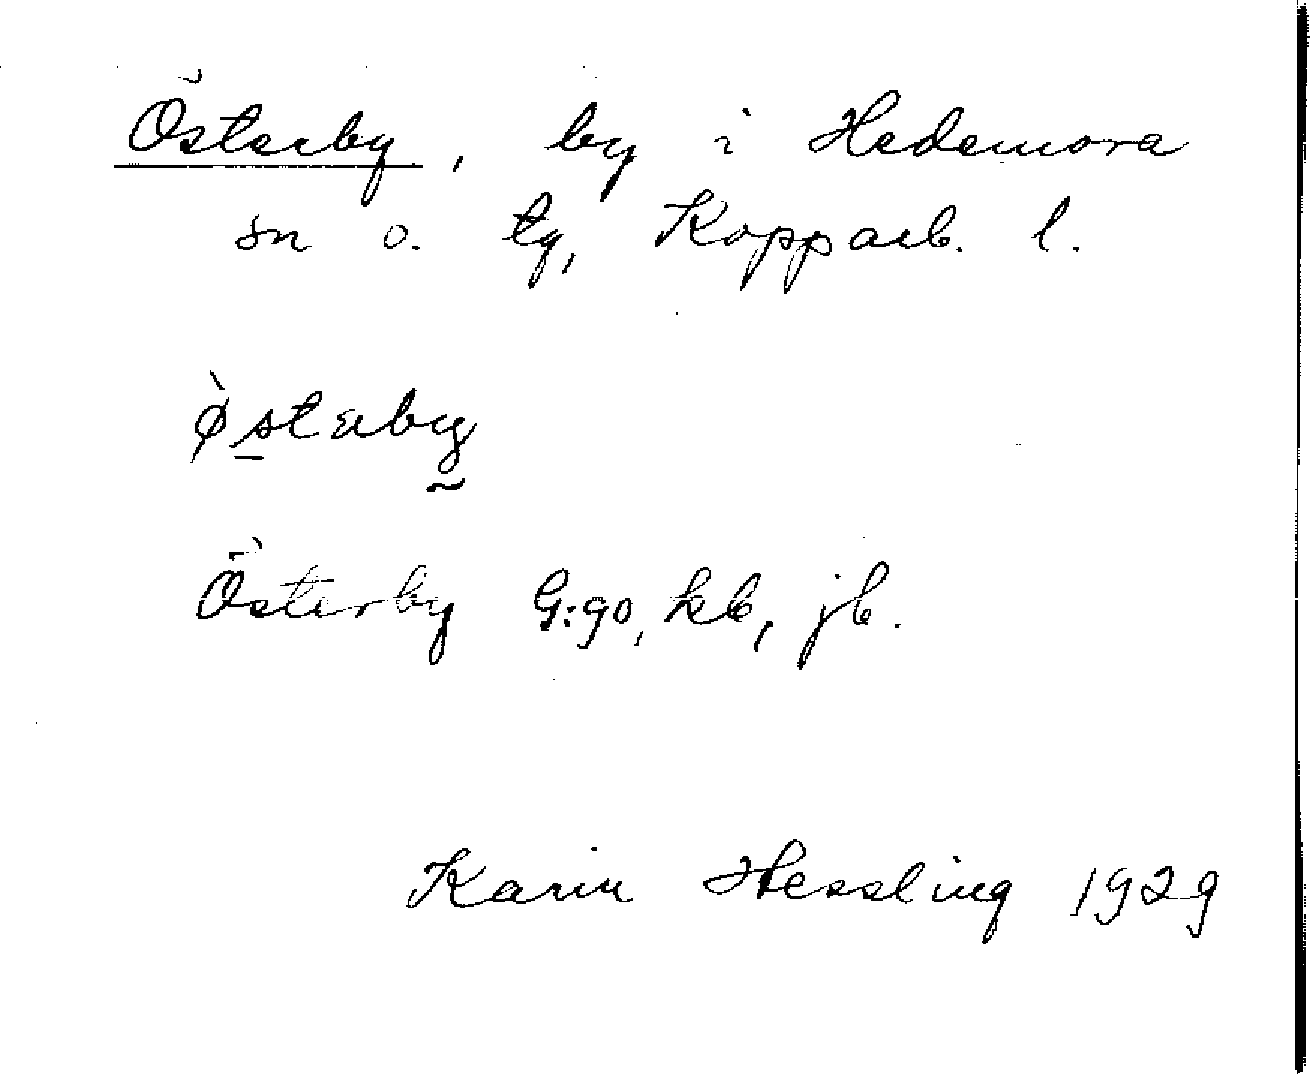 Österby, by i Hedemora
sn o. tg, Kopparb. l.
ø̀stærby
Österby G:go, kb, jb.
Karin Hessling 1929